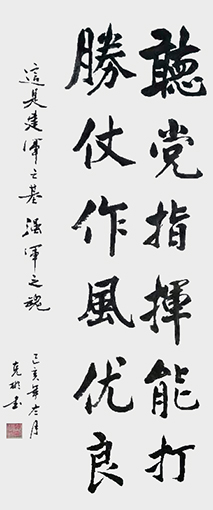 聽党指揮能打
勝仗作風优良
這是建軍之基强軍之魂
己亥年 月
克 书